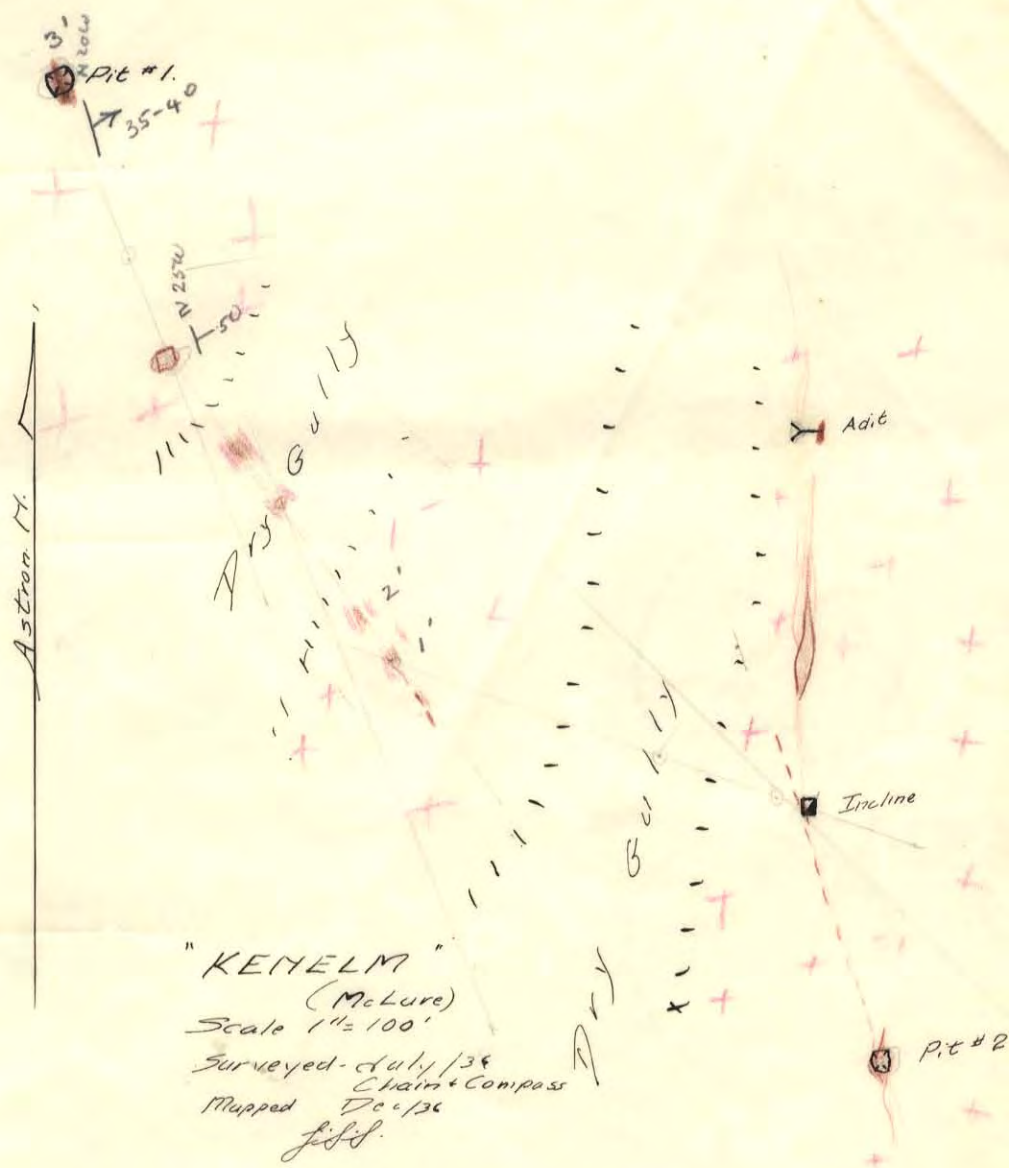 3'
N 20W
Pit #1.
35-40
N 25W
50
Dry Gully
2'
1'
Astron M.
Adit
Dry Gully
Incline
Pit #2
"KENELM"
(McLure)
Scale 1"=100'
Surveyed - July/36
Chain & Compass
Mapped Dec/36